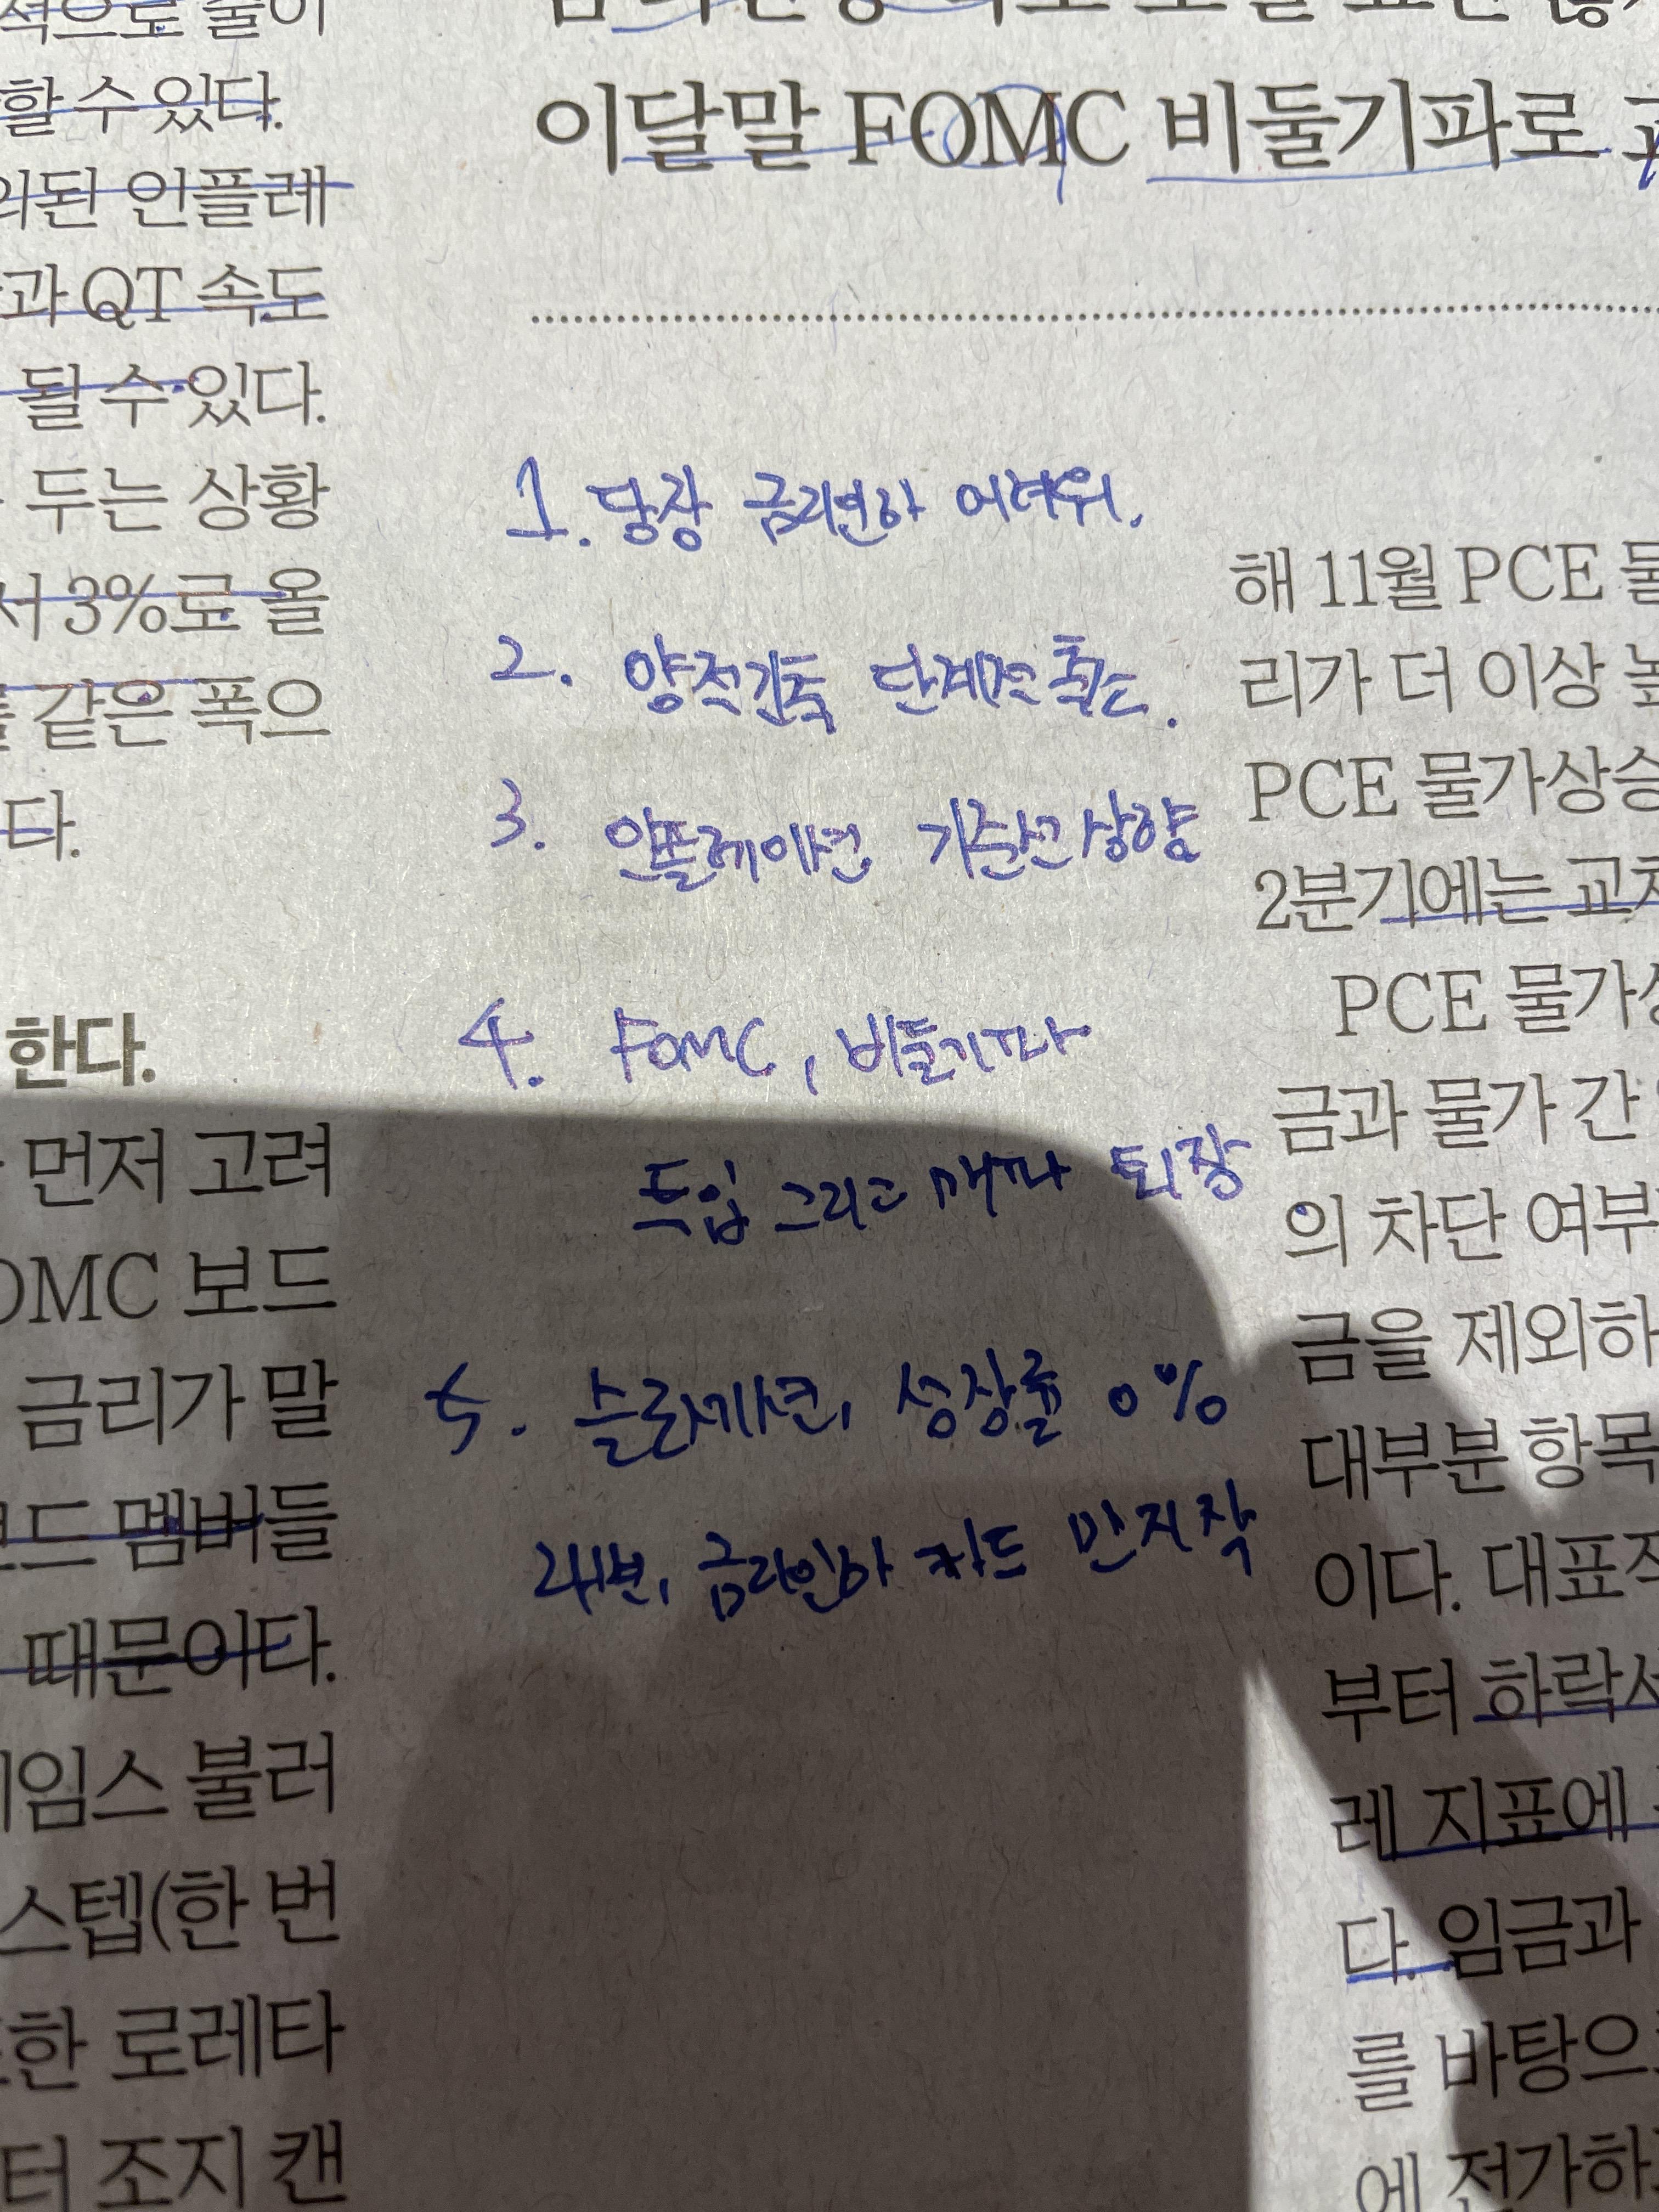 할 수 있다.
의된 인플레
과 QT 속도
될 수 있다.
두는 상황
서 3%로 올
같은 폭으
다.
한다.
먼저 고려
OMC 보드
금리가 말
보드 멤버들
때문이다.
임스 불러
스텝(한 번
한 로레타
터 조지 캔
이달말 FOMC 비둘기파로
1. 당장 금리인하 어려워.
2. 양적긴축 단계적 축소.
3. 인플레이션 기준선 상향
4. FOMC, 비둘기파
투입 그리고 매파 퇴장
5. 슬로세션, 성장률 0%
대변, 금리인하 카드 만지작
해 11월 PCE 물
리가 더 이상 높
PCE 물가상승
2분기에는 교차
PCE 물가상
금과 물가 간
의 차단 여부
금을 제외하
대부분 항목
이다. 대표적
부터 하락세
레 지표에
다. 임금과
를 바탕으로
에 전가하